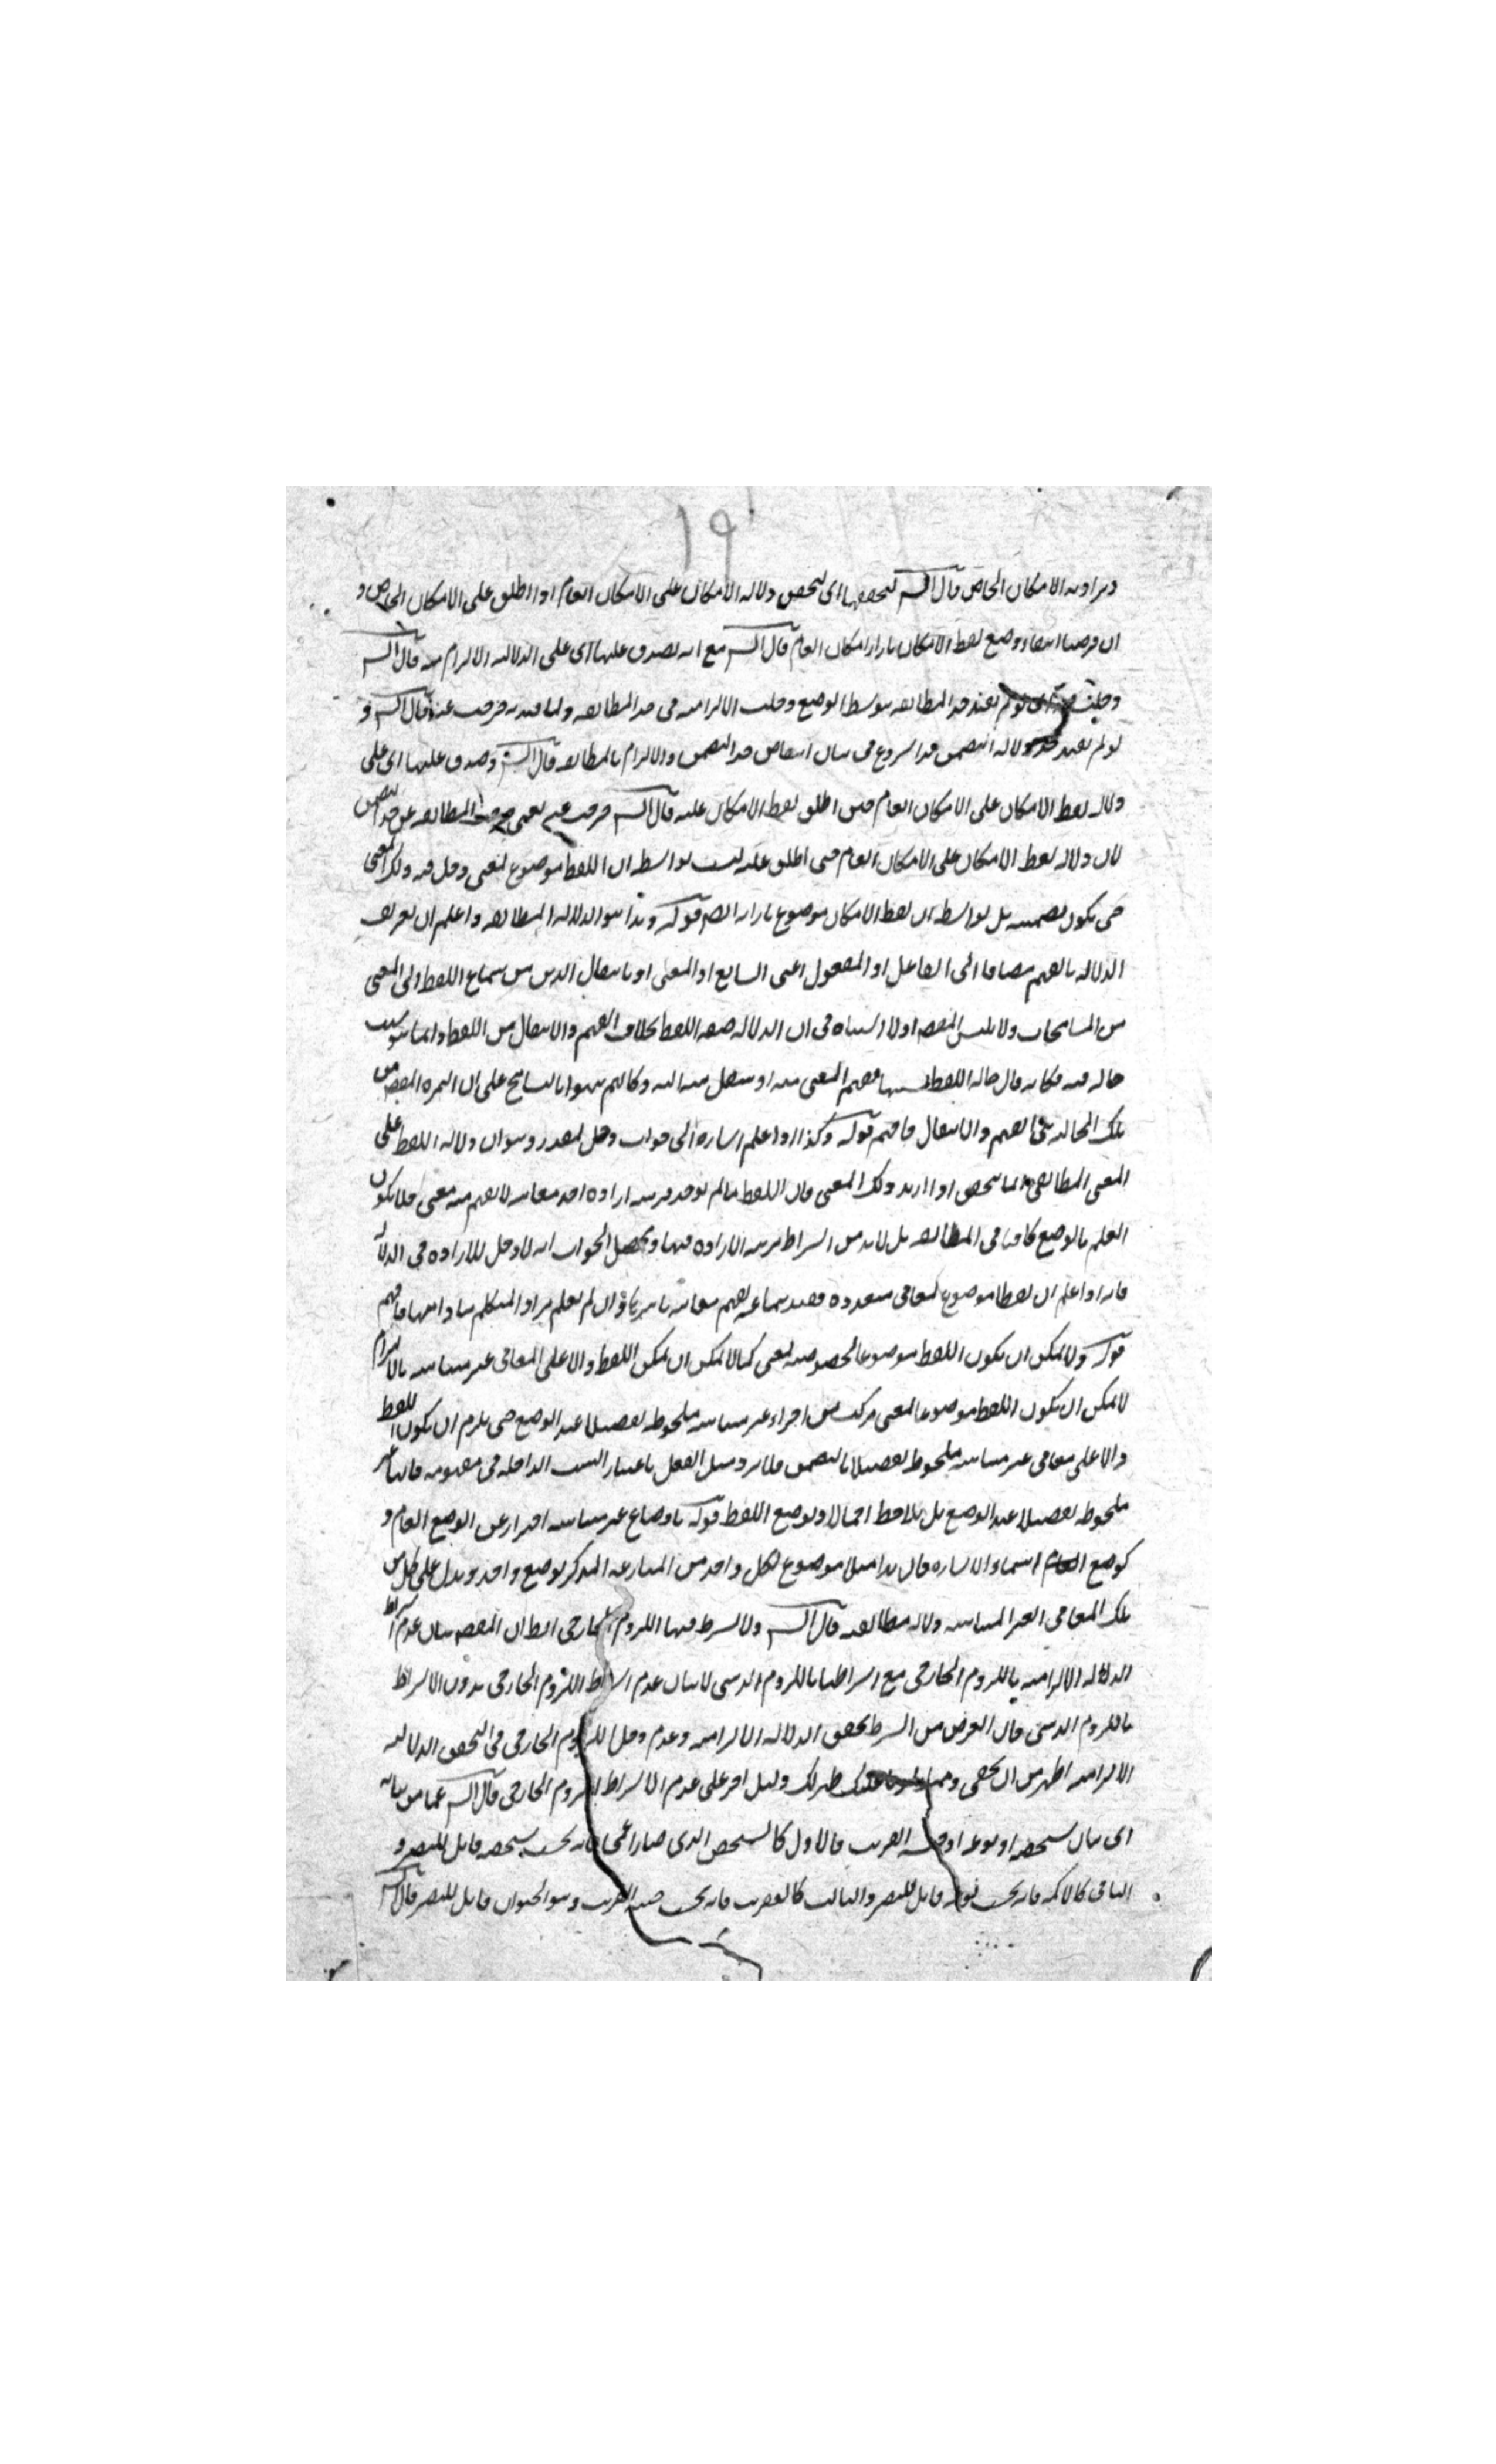 ١٩
ويراد به الامكان الخاص قال الشـ لتحققها اى لتحقق دلالة الامكان على الامكان العام اذا اطلق على الامكان الخاص و
ان فرضنا انتفاء وضع لفظ الامكان بازاء الامكان العام قال الشـ مع انه يصدق عليها اى على الدلالة الالتزام منه قال الشـ
لو لم يقيد حد المطابقة بتوسط الوضع دخلت الالتزامية فى حد المطابقة ولما قيد به خرجت عنه قال الشـ و
لو لم يقيد حد دلالة التضمن هذا شروع فى بيان انتقاض حد التضمن والالتزام بالمطابقة قال الشـ وصدق عليها اى على
دلالة لفظ الامكان على الامكان العام حين اطلق لفظ الامكان عليه قال الشـ خرجت عنه يعنى خرجت المطابقة عن حد التضمن
لان دلالة لفظ الامكان على الامكان العام حين اطلق عليه ليست بواسطة ان اللفظ موضوع لمعنى دخل فيه ذلك المعنى
حتى يكون تضمنية بل بواسطة ان لفظ الامكان موضوع بازائه ايضا قوله وهذا هو الدلالة المطابقة واعلم ان تعريف
الدلالة بالفهم مضافا الى الفاعل او المفعول اعنى السامع او المعنى او بانتقال الذهن من سماع اللفظ الى المعنى
من المسامحات ولا يلتبس المقصود اذ لا اشتباه فى ان الدلالة صفة اللفظ بخلاف الفهم والانتقال من اللفظ وانما هو بسبب
حالة فيه فكانه قال حالة اللفظ بسببها يفهم المعنى منه او ينتقل منه اليه وكانهم نبهوا بالتسامح على ان الثمرة المقصودة من
تلك الحالة هى الفهم والانتقال فافهم قوله وكذا اذا علم اشارة الى جواب دخل مقدر وهو ان دلالة اللفظ على
المعنى المطابقى انما يتحقق اذا اريد ذلك المعنى فان اللفظ ما لم يوجد قرينة ارادة احد معانيه لا يفهم منه معنى فلا يكون
العلم بالوضع كافيا فى المطابقة بل لا بد من اشتراط قرينة الارادة فيها ومحصل الجواب انه لا دخل للارادة فى الدلالة
فانه اذا علم ان لفظا موضوع لمعانى متعددة فعند سماعه يفهم معانيه باسرها وان لم يعلم مراد المتكلم منها فافهم
قوله ولا يمكن ان يكون اللفظ موضوعا لخصوصية لمعنى كما لا يمكن ان يمكن اللفظ دالا على المعانى غير متناهية بالالتزام
لا يمكن ان يكون اللفظ موضوعا لمعنى مركب من اجزاء غير متناهية ملحوظة تفصيلا عند الوضع حتى يلزم ان يكون اللفظ
دالا على معانى غير متناهية ملحوظة تفصيلا بالتضمن فلا يرد مثل الفعل باعتبار النسب الداخلة فى مفهومه فانها غير
ملحوظة تفصيلا عند الوضع بل يلاحظ اجمالا ويوضع اللفظ قوله باوضاع غير متناهية احتراز عن الوضع العام و
كوضع اسماء الاشارة فان هذا مثلا موضوع لكل واحد من المشار اليه المذكر بوضع واحد ويدل على كل من
تلك المعانى الغير المتناهية دلالة مطابقية قال الشـ ولا يشترط فيها اللزوم الخارجى الظ ان المقصود بيان عدم اشتراط
الدلالة الالتزامية باللزوم الخارجى مع اشتراطها باللزوم الذهنى لا بيان عدم اشتراط اللزوم الخارجى بدون الاشتراط
باللزوم الذهنى فان الغرض من الشرط تحقق الدلالة الالتزامية وعدم دخل اللزوم الخارجى فى التحقق الدلالة
الالتزامية اظهر من ان يخفى ظهر لك دليل اخر على عدم الاشتراط اللزوم الخارجى قال الشـ عما من شانه
اى شان شخصه او نوعه او جنسه القريب فالاول كالشخص الذى صار اعمى فانه بحسب شخصه قابل للبصر و
الثانى كالاكمه فانه بحسب نوعه قابل للبصر والثالث كالعقرب فانه بحسب جنسه القريب وهو الحيوان قابل للبصر قال الشـ